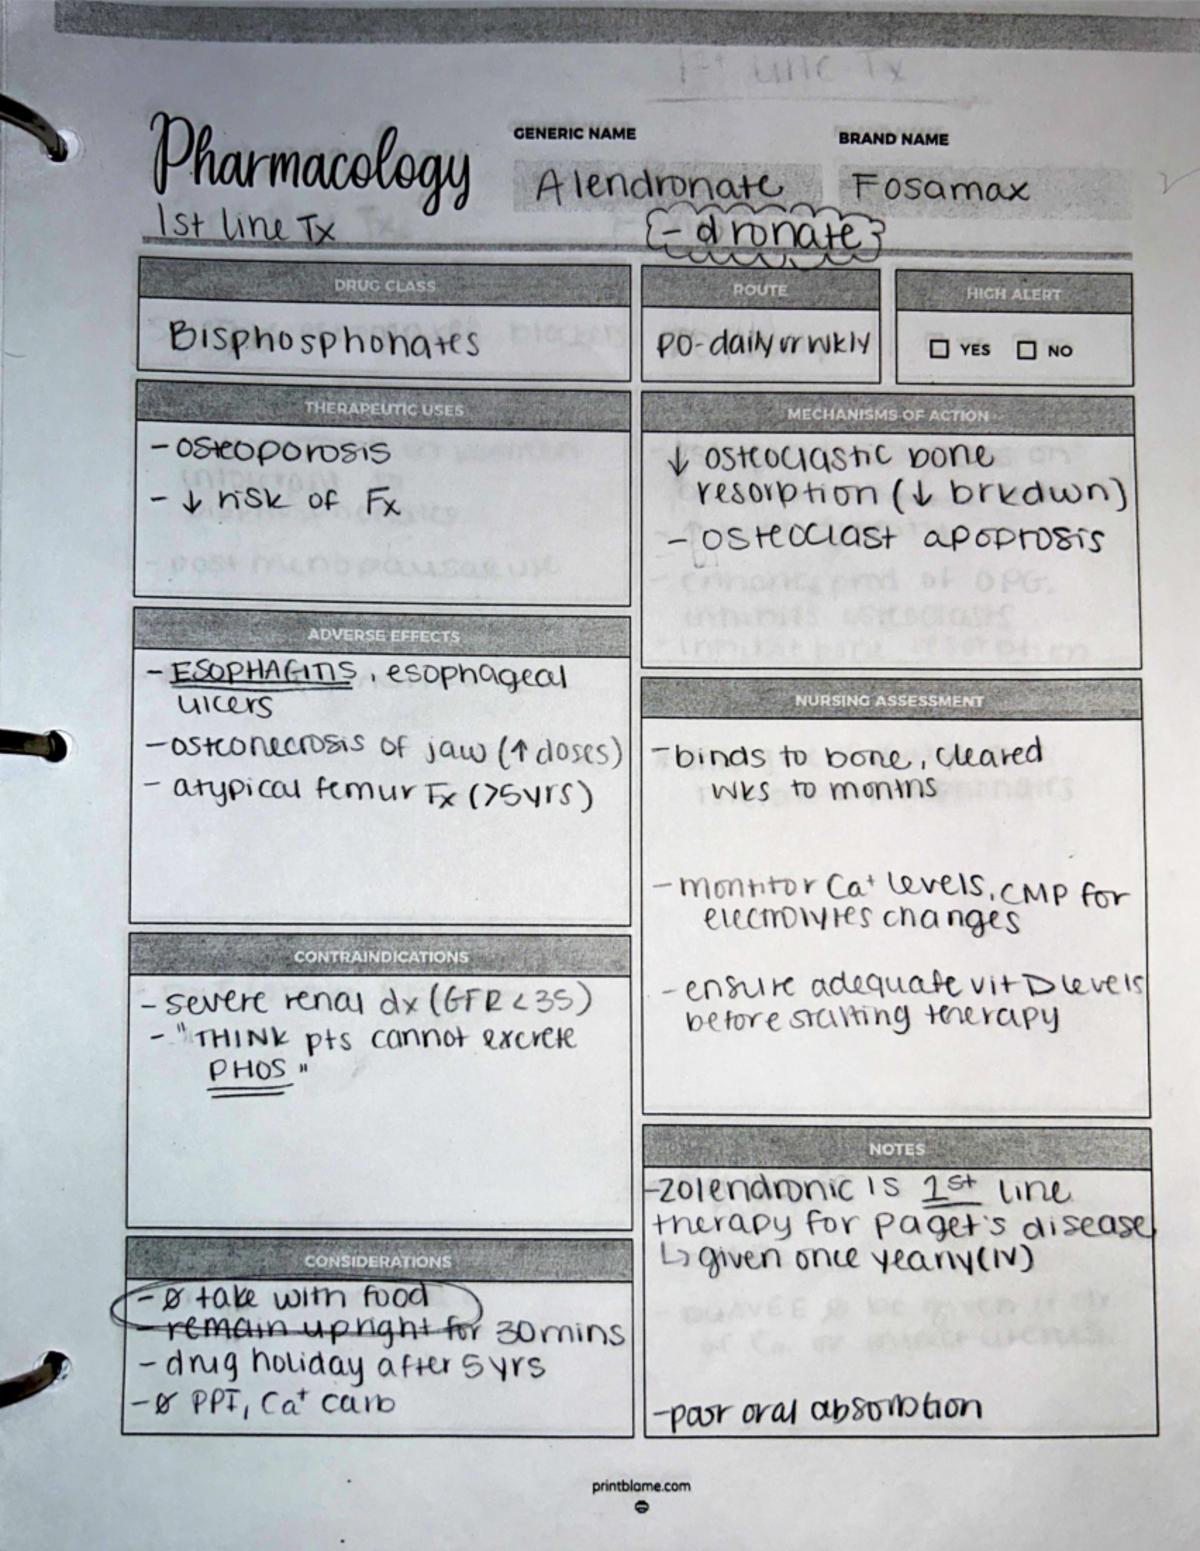 1st line Tx
Pharmacology
GENERIC NAME
BRAND NAME
Alendronate
Fosamax
1st line Tx
{-dronate}
DRUG CLASS
Bisphosphonates
ROUTE
PO-daily or wkly
HIGH ALERT
YES NO
THERAPEUTIC USES
- osteoporosis
- ↓ risk of Fx
MECHANISMS OF ACTION
↓ osteoclastic bone
resorption (↓ brkdwn)
- osteoclast apoptosis
ADVERSE EFFECTS
- ESOPHAGITIS, esophageal
ulcers
- osteonecrosis of jaw (↑ doses)
- atypical femur Fx (>5yrs)
NURSING ASSESSMENT
- binds to bone, cleared
wks to months
- montitor Ca⁺ levels, CMP for
electrolytes changes
- ensure adequate vit D levels
before starting therapy
CONTRAINDICATIONS
- severe renal dx (GFR < 35)
- "THINK pts cannot excrete
PHOS"
NOTES
- zolendronic is 1st line
therapy for paget's disease
↳ given once yearly (IV)
- poor oral absorption
CONSIDERATIONS
- Ø take with food
- remain upright for 30 mins
- drug holiday after 5 yrs
- Ø PPI, Ca⁺ carb
printblame.com